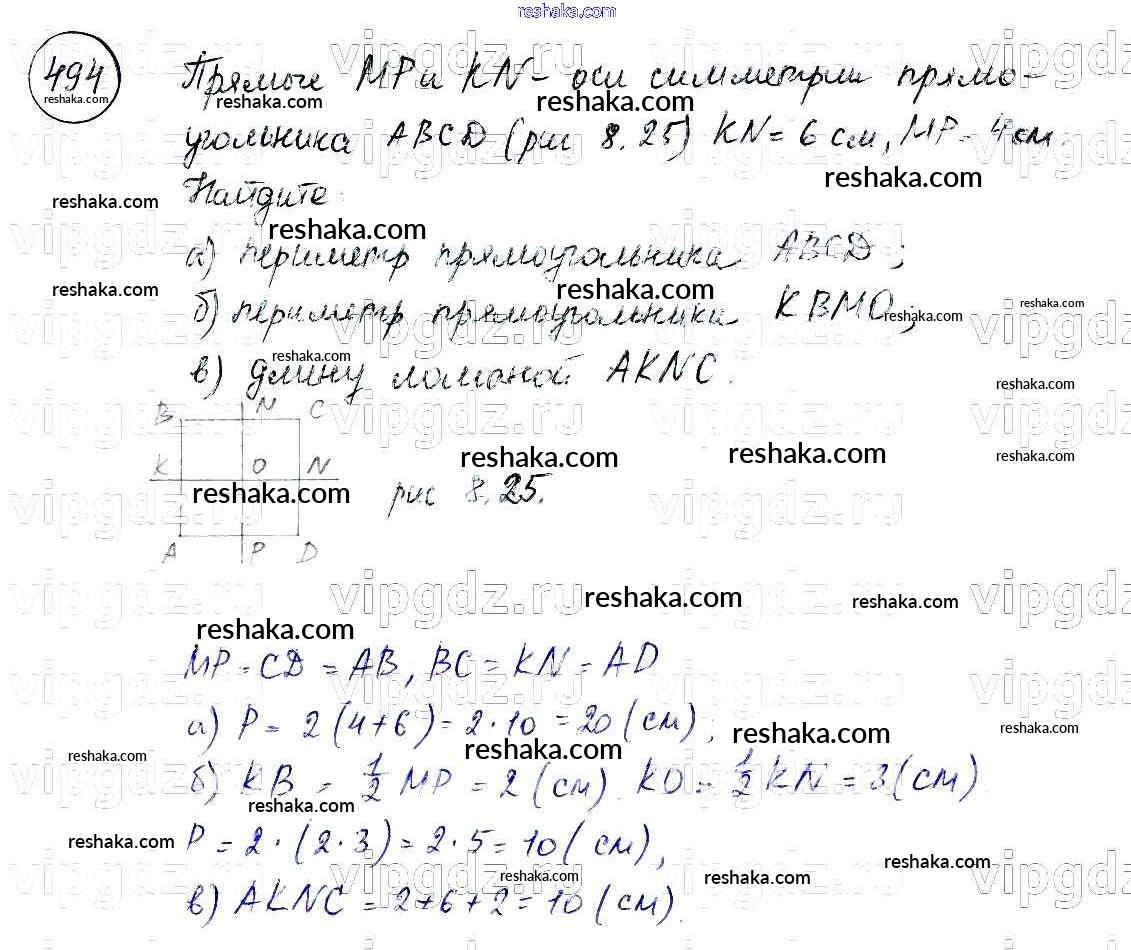 reshaka.com
494 Прямые MP и KN - оси симметрии прямо-
угольника ABCD (рис 8.25) KN = 6 см, MP = 4 см.
Найдите:
а) периметр прямоугольника ABCD;
б) периметр прямоугольника KBMO;
в) длину ломаной AKNC.
B N C
K O N
рис 8.25.
A P D
MP = CD = AB, BC = KN = AD
а) P = 2 (4+6) = 2·10 = 20 (см);
б) KB = 1/2 MP = 2 (см). KO = 1/2 KN = 3 (см)
P = 2·(2·3) = 2·5 = 10 (см),
в) AKNC = 2+6+2 = 10 (см).